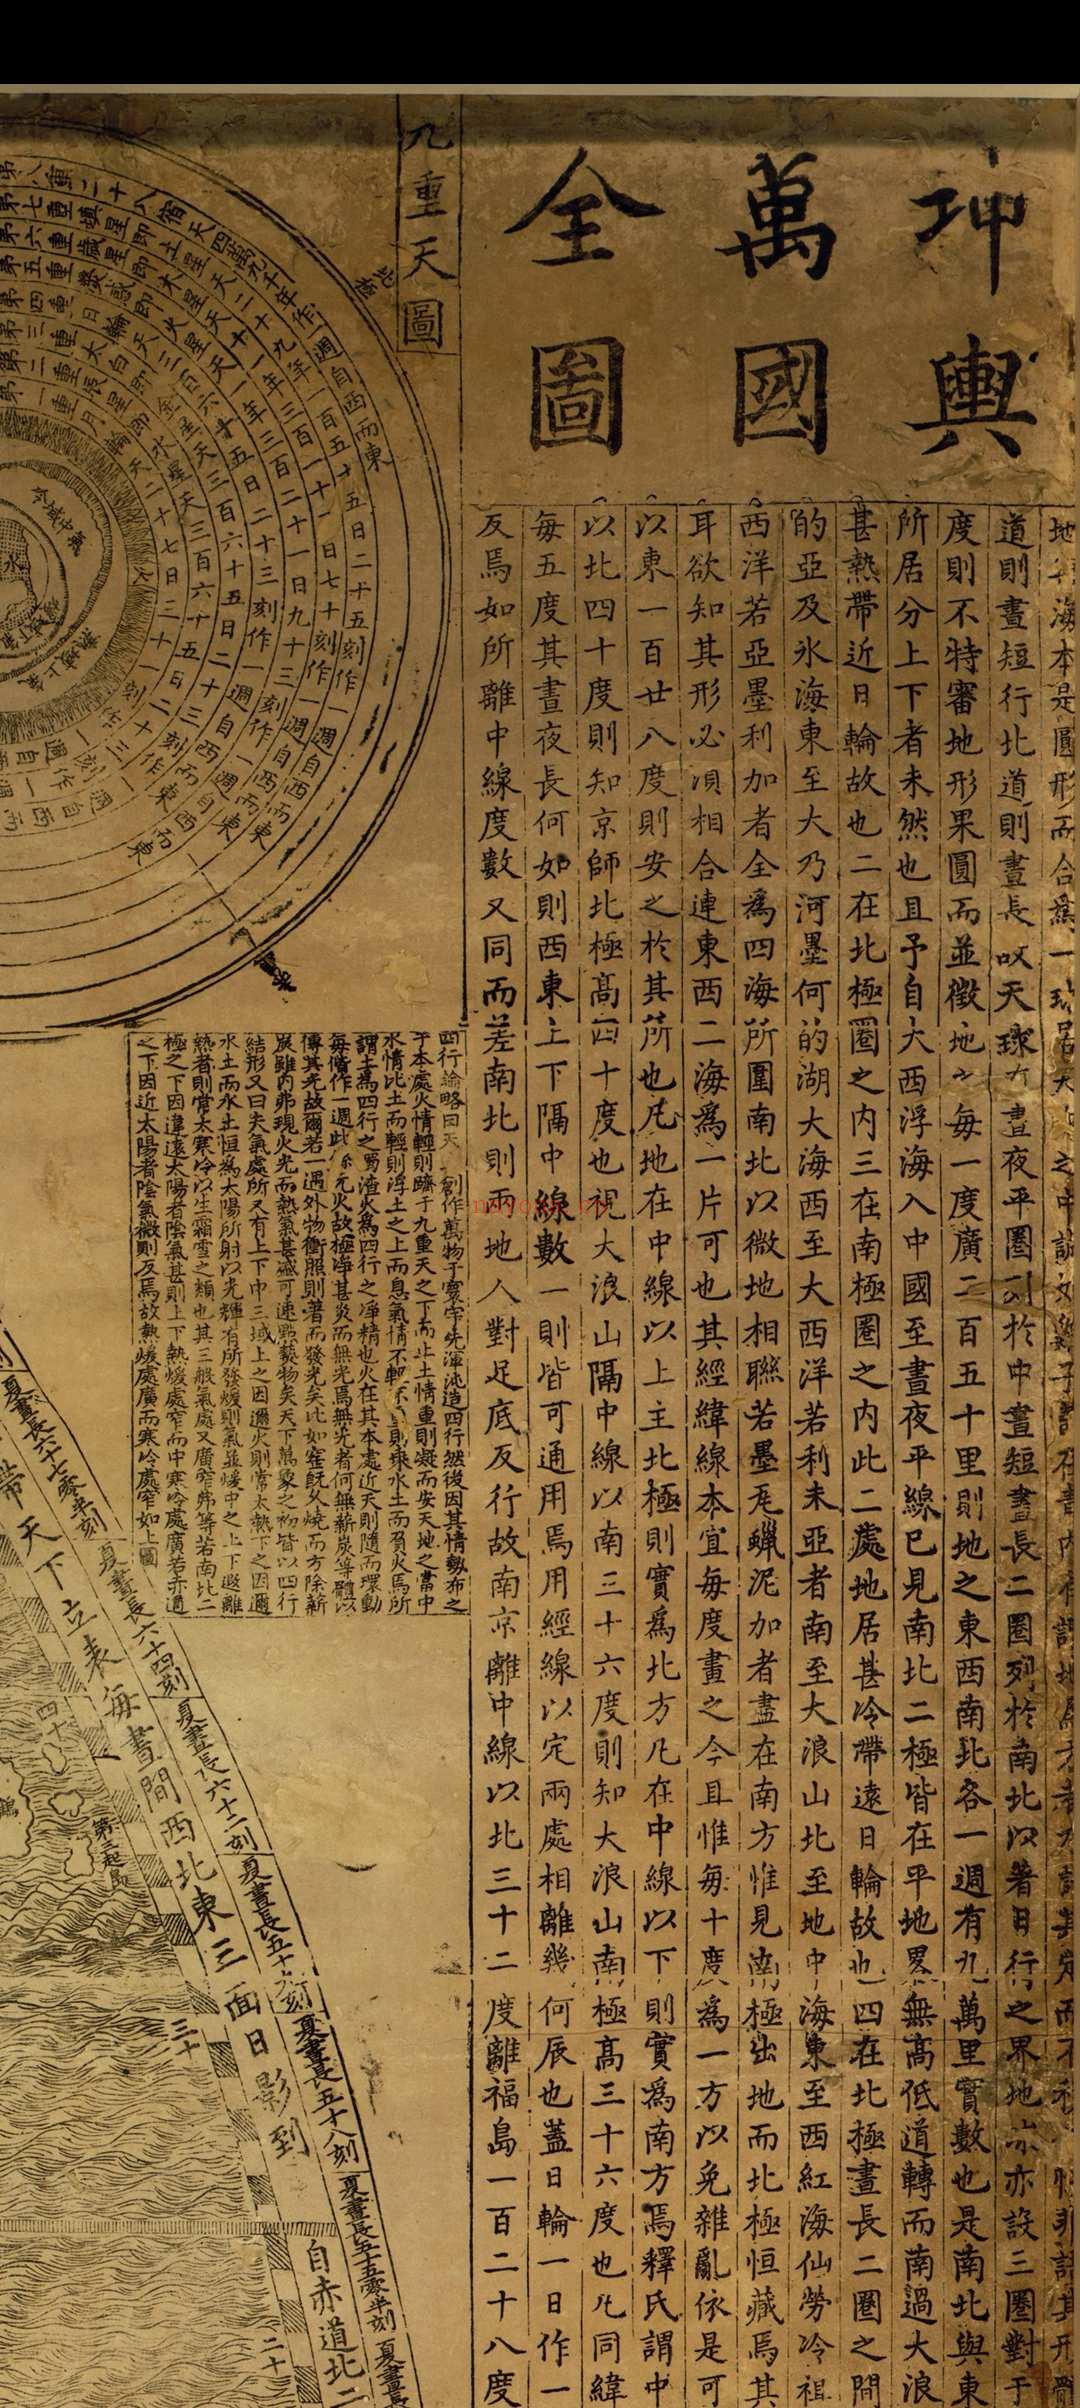 坤輿
萬國
全圖
地海本是圓形而合爲一球居天之中誠如子在青内有謂地爲方者乃語其定而不性非語其形體
道則晝短行北道則晝長以天球有晝夜平圈列於中晝短晝長二圈列於南北以著日行之界地亦設三圈對于
度則不特審地形果圓而並徵地之每一度廣二百五十里則地之東西南北各一週有九萬里實數也是南北與東
所居分上下者未然也且予自大西浮海入中國至晝夜平線已見南北二極皆在平地畧無高低道轉而南過大浪
甚熱帶近日輪故也二在北極圈之内三在南極圈之内此二處地居甚冷帶遠日輪故也四在北極晝長二圈之間
的亞及氷海東至大乃河墨何的湖大海西至大西洋若利未亞者南至大浪山北至地中海東至西紅海仙勞冷祖
西洋若亞墨利加者全爲四海所圍南北以微地相聯若墨瓦蠟泥加者盡在南方惟見南極出地而北極恒藏焉其
耳欲知其形必湏相合連東西二海爲一片可也其經緯線本宜每度畫之今且惟每十度爲一方以免雜亂依是可
以東一百廿八度則安之於其所也凡地在中線以上主北極則實爲北方凡在中線以下則實爲南方焉釋氏謂中
以北四十度則知京師北極高四十度也視大浪山隔中線以南三十六度則知大浪山南極高三十六度也凡同緯
每五度其晝夜長何如則西東上下隔中線數一則皆可通用焉用經線以定兩處相離幾何辰也蓋日輪一日作一
反焉如所離中線度數又同而差南北則兩地人對足底反行故南京離中線以北三十二度離福島一百二十八度
九重天圖
北極
第八重二十八宿天四萬九千年作一週自西而東
第七重填星即土星天二十九年一百五十五日二十五刻作一週自西而東
第六重歲星即木星天十一年三百一十一日七十刻作一週自西而東
第五重熒惑即火星天一年三百二十一日九十三刻作一週自西而東
第四重日輪天三百六十五日二十三刻作一週自西而東
第三重太白即金星天三百六十五日二十三刻作一週自西而東
第二重辰星即水星天三百六十五日二十三刻作一週自西而東
第一重月輪天二十七日三十一刻作一週自西而
水
四行論略曰天創作萬物于寰宇先渾沌造四行然後因其情勢布之
于本處火情輕則躋于九重天之下而止土情重則凝而安天地之當中
水情比土而輕則浮土之上而息氣情不輕不則乘水土而負火焉所
謂土爲四行之濁渣火爲四行之淨精也火在其本處近天則隨而環動
每偕作一週此係元火故極淨甚炎而無光焉無光者何無薪炭等體以
傳其光故爾若一遇外物衝照則著而發光矣比如窑既久燒而方除薪
炭雖内弗現火光而熱氣甚盛可速點藝物矣天下萬象之初皆以四行
結形又曰夫氣處所又有上下中三域上之因邇火則常太熱下之因邇
水土而水土恒爲太陽所射以光輝有所發煖則氣並煖中之上下遐離
熱者則常太寒冷以生霜雪之類也其三般氣處又廣窄弗等若南北二
極之下因違遠太陽者陰氣甚則上下熱煖處窄而中寒冷處廣若赤道
之下因近太陽者陰氣微則反焉故熱煖處廣而寒冷處窄如上圖
夏晝長六十七零半刻
夏晝長六十四刻
夏晝長六十二刻
夏晝長五十九刻
夏晝長五十八刻
夏晝長五十五零半刻
夏晝長
帶天下立表每晝間西北東三面日影到
自赤道北二
四十
三十
二十